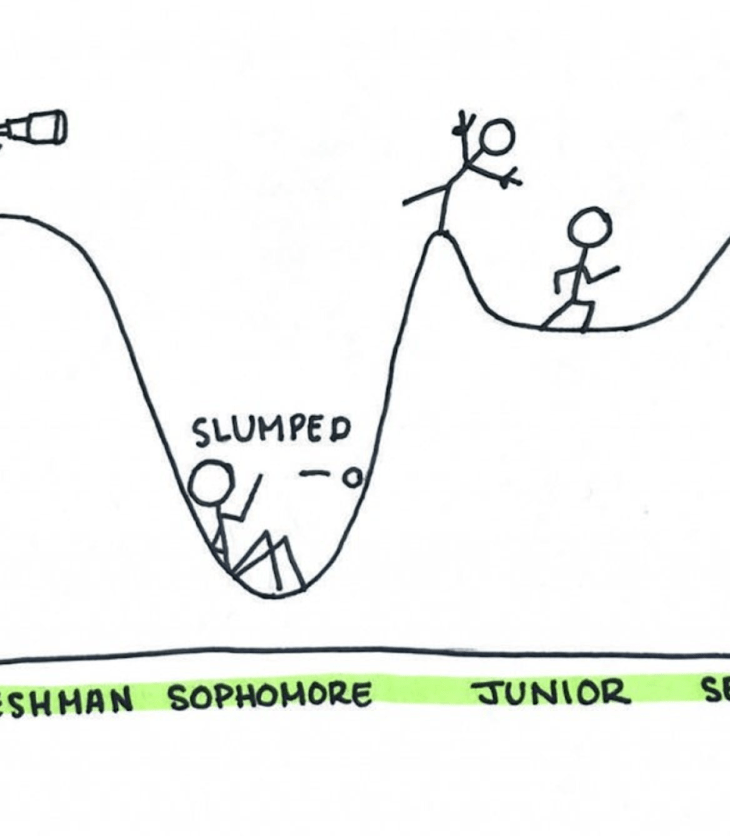 SLUMPED
ESHMAN SOPHOMORE JUNIOR SE